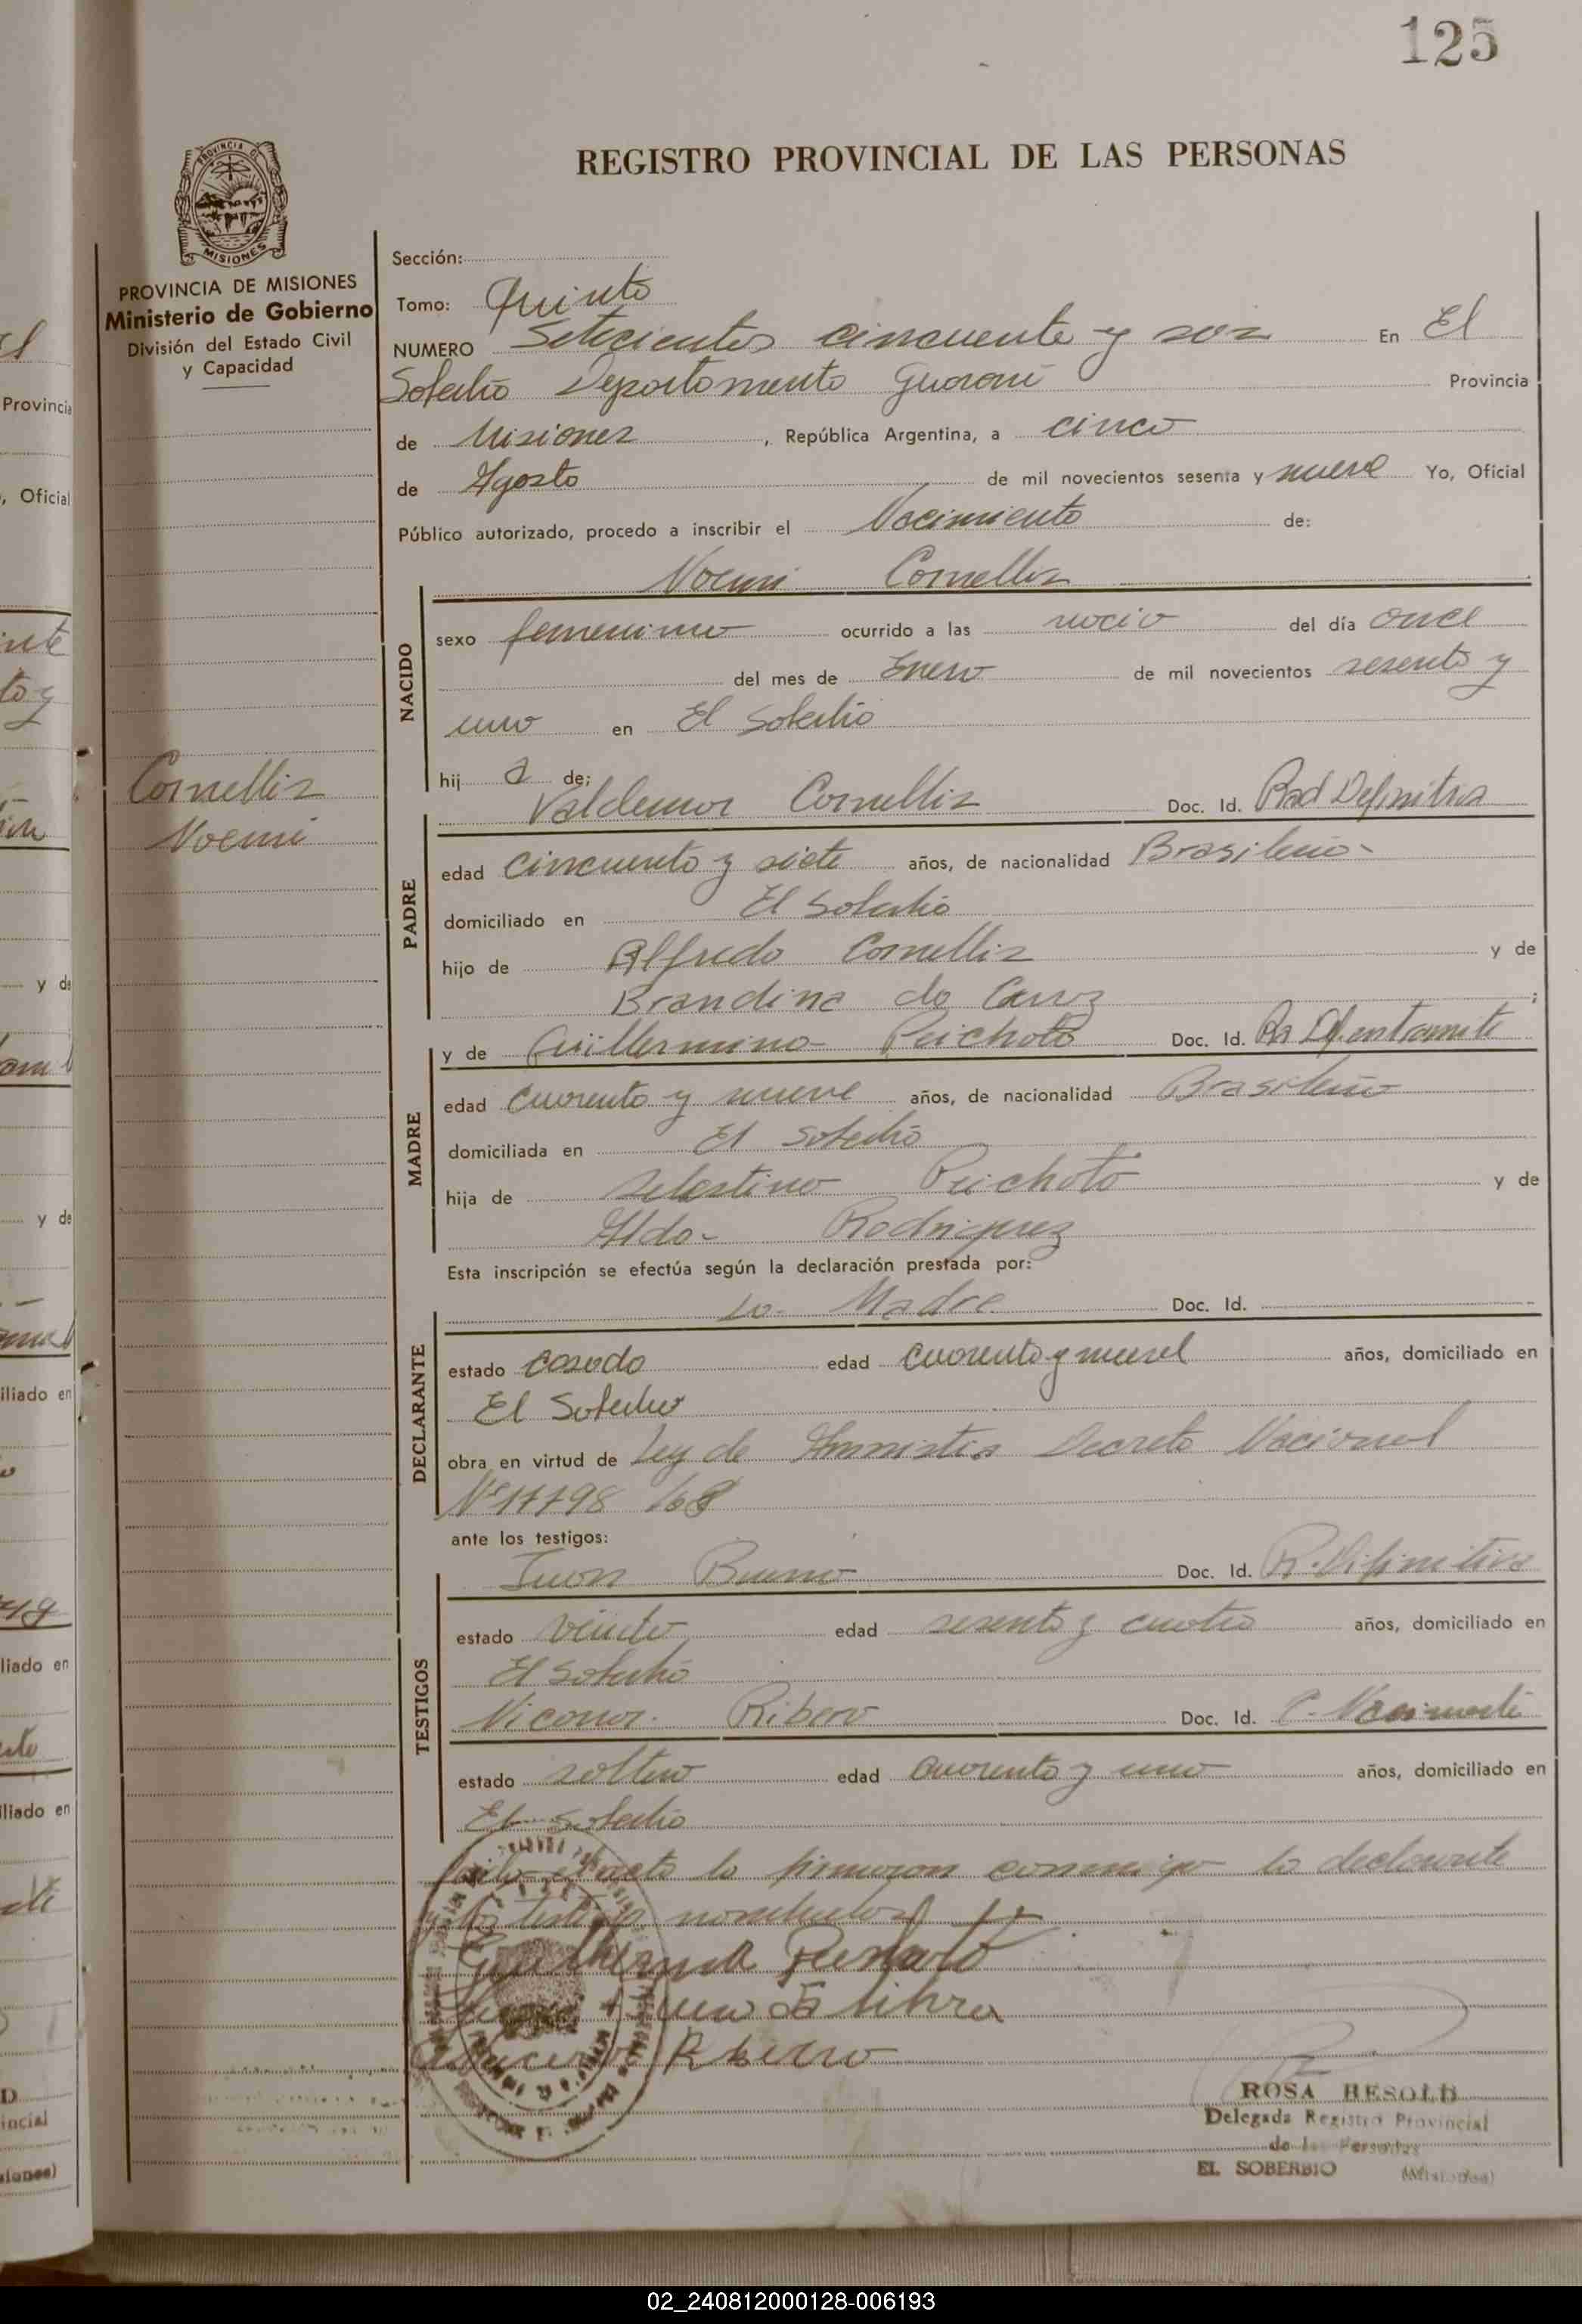 125
REGISTRO PROVINCIAL DE LAS PERSONAS
PROVINCIA DE
MISIONES
PROVINCIA DE MISIONES
Ministerio de Gobierno
División del Estado Civil
y Capacidad
Cornellis
Noemi
Sección:
Tomo: Quinto
NUMERO Setecientos cincuenta y seis En El
Soberbio Departamento Guarani Provincia
de Misiones, República Argentina, a cinco
de Agosto de mil novecientos sesenta y nueve Yo, Oficial
Público autorizado, procedo a inscribir el Nacimiento de:
Noemi Cornellis
NACIDO
sexo femenino ocurrido a las del día once
del mes de Enero de mil novecientos sesenta y
uno en El Soberbio
hij a de:
Valdemar Cornellis Doc. Id. Rad Definitiva
PADRE
edad cincuenta y siete años, de nacionalidad Brasileña
domiciliado en El Soberbio
hijo de Alfredo Cornellis y de
Brandina da Cruz;
y de Guillermina Peichoto Doc. Id.
MADRE
edad cuarenta y nueve años, de nacionalidad Brasileña
domiciliada en El Soberbio
hija de Selestino Peichoto y de
Alda Rodriguez
Esta inscripción se efectúa según la declaración prestada por:
La Madre Doc. Id.
DECLARANTE
estado casada edad cuarenta y nueve años, domiciliado en
El Soberbio
obra en virtud de Ley de Amnistia Decreto Nacional
Nº 17798/68
ante los testigos:
Juan Doc. Id. R. Difinitiva
TESTIGOS
estado viudo edad sesenta y cuatro años, domiciliado en
El Soberbio
Nicanor Ribero Doc. Id.
estado soltero edad cuarenta y uno años, domiciliado en
El Soberbio
acta la firmaron conmigo la declarante
testigos nombrados
Ribeiro
ROSA BESOLD
Delegada Registro Provincial
de las Personas
EL SOBERBIO (Misiones)
02_240812000128-006193